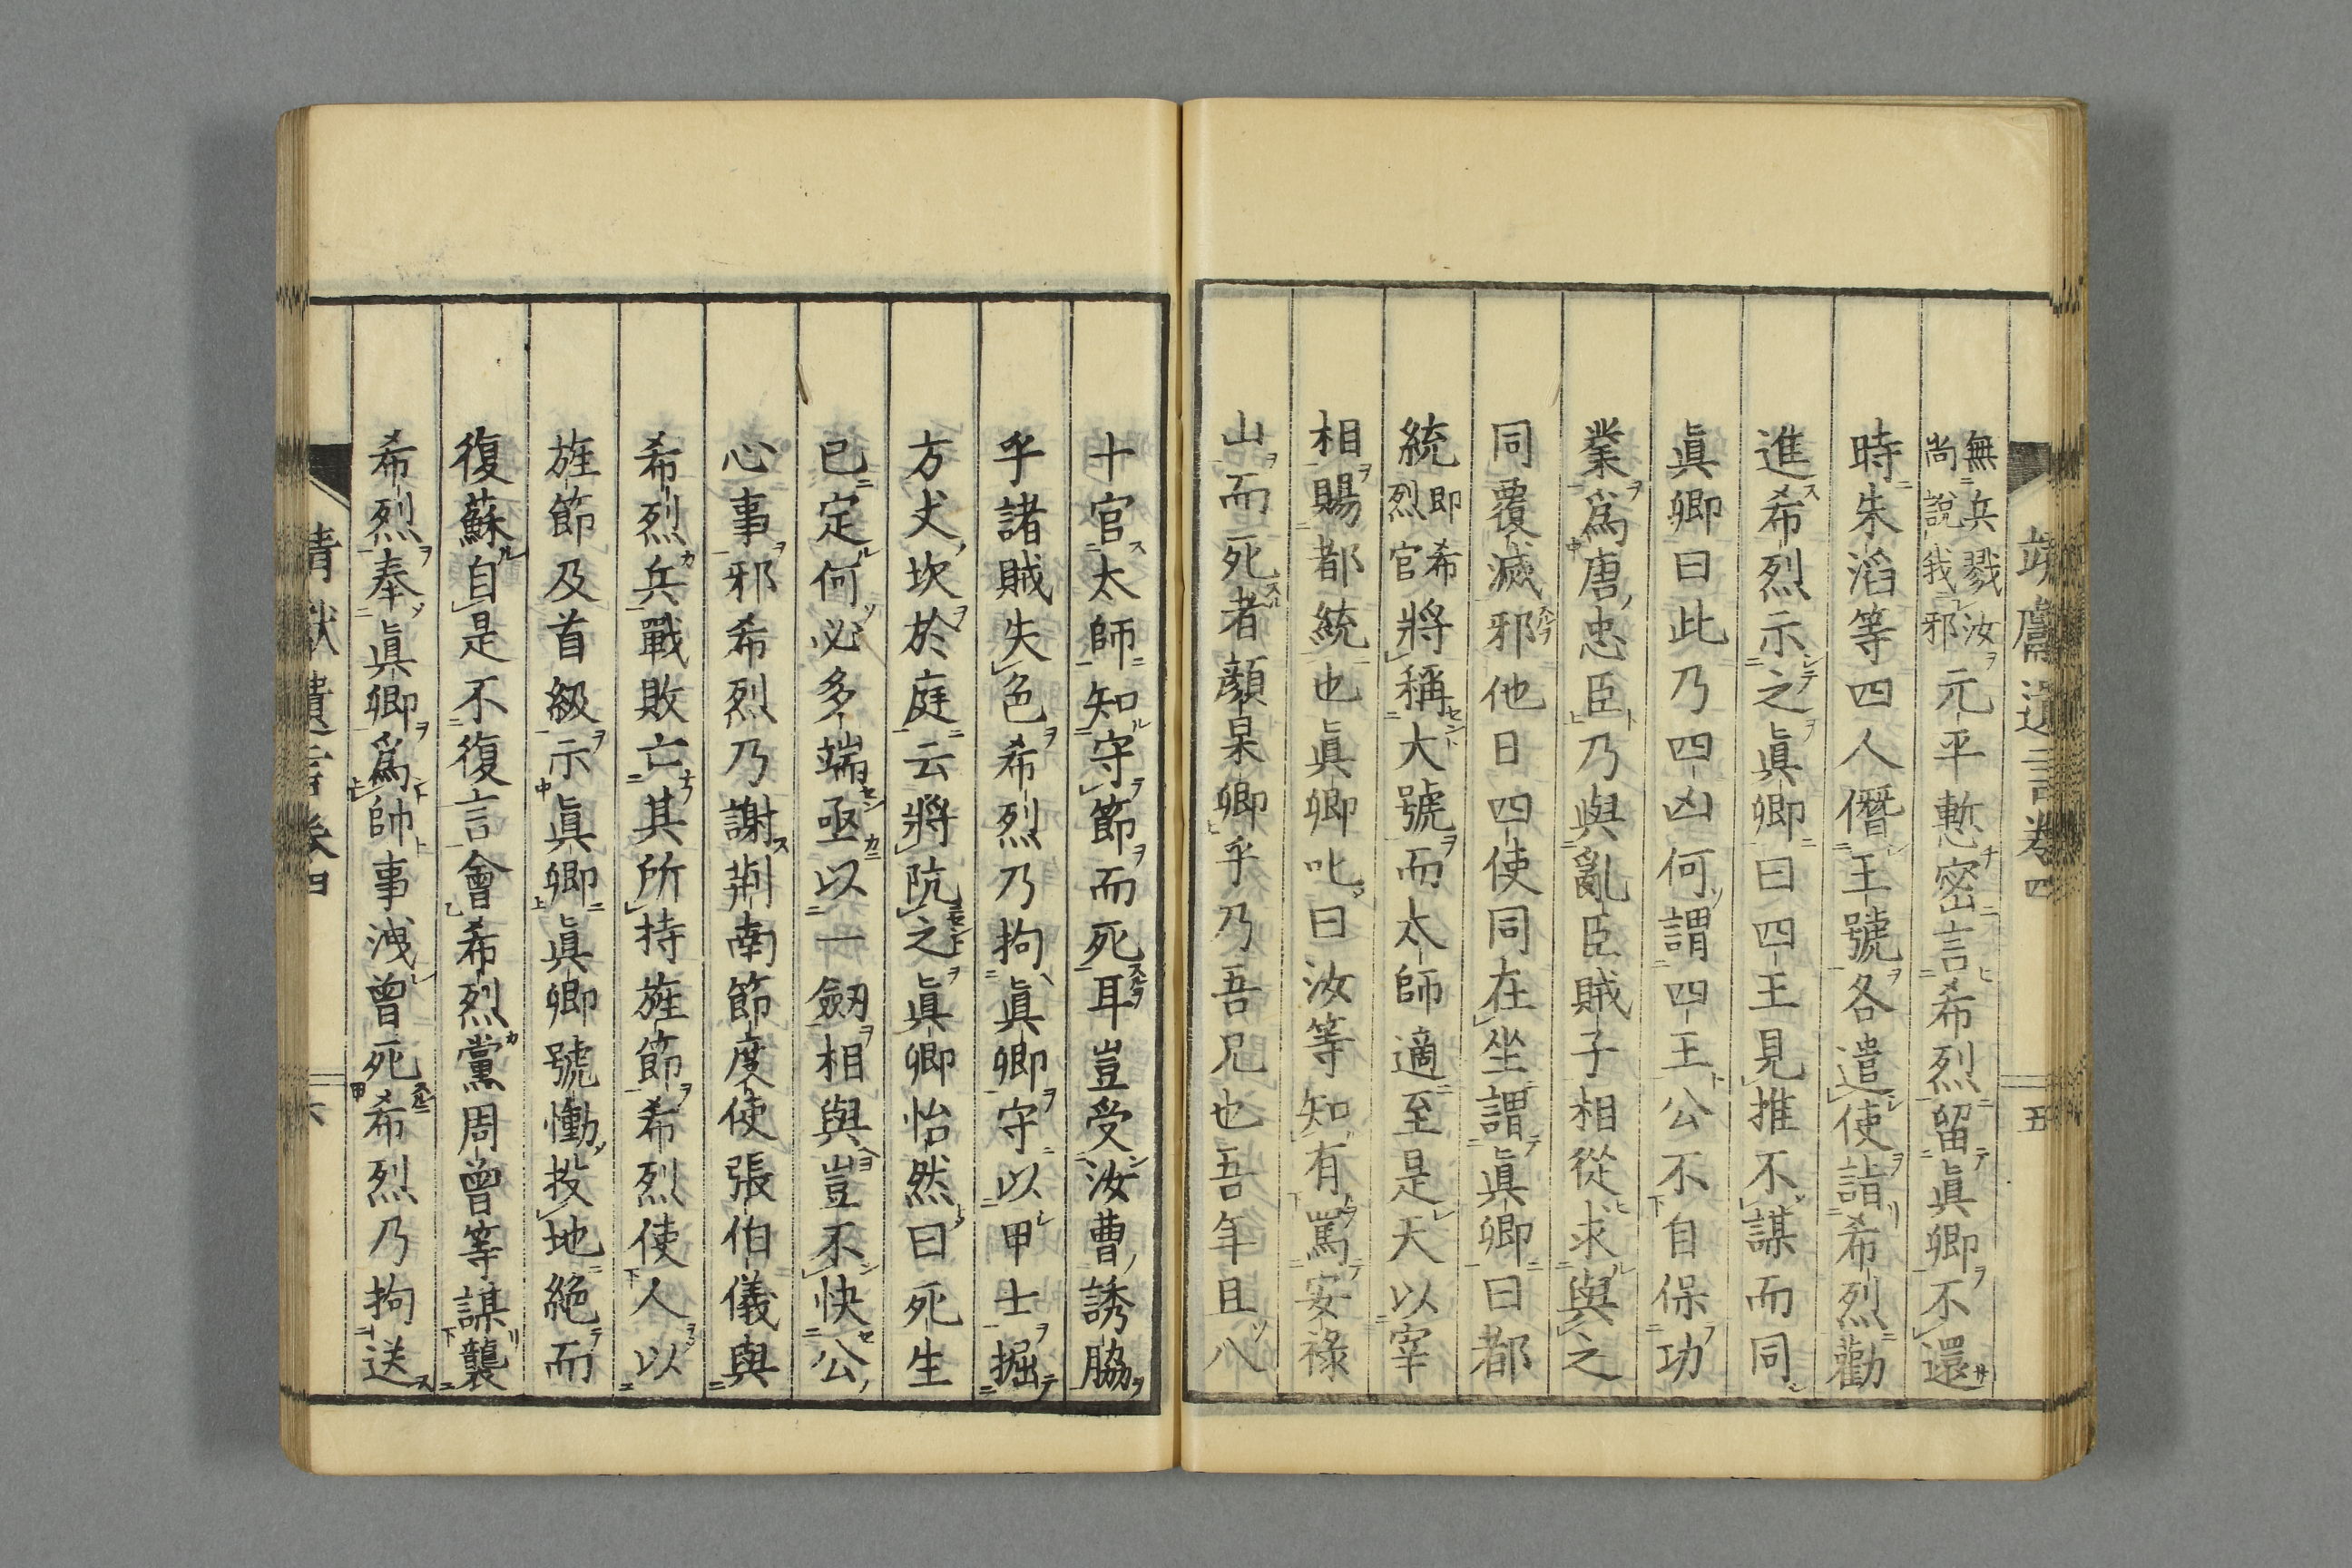 靖獻遺言卷四
五
無兵戮汝
尚說我邪元平慙密言希烈留眞卿不還
時朱滔等四人僭王號各遣使詣希烈勸
進希烈示之眞卿曰四王見推不謀而同
眞卿曰此乃四凶何謂四王公不自保功
業爲唐忠臣乃與亂臣賊子相從求與之
同覆滅邪他日四使同在坐謂眞卿曰都
統即希烈官將稱大號而太師適至是天以宰
相賜都統也眞卿叱曰汝等知有罵安祿
山而死者顏杲卿乎乃吾兄也吾年且八
十官太師知守節而死耳豈受汝曹誘脇
乎諸賊失色希烈乃拘眞卿守以甲士掘
方丈坎於庭云將阬之眞卿怡然曰死生
已定何必多端亟以一劔相與豈不快公
心事邪希烈乃謝荊南節度使張伯儀與
希烈兵戰敗亡其所持旌節希烈使人以
旌節及首級示眞卿眞卿號慟投地絶而
復蘇自是不復言會希烈黨周曾等謀襲
希烈奉眞卿爲帥事洩曾死希烈乃拘送
靖獻遺言卷四
六